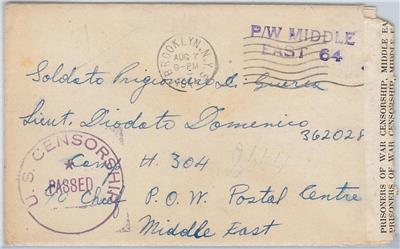 BROOKLYN, N.Y.
AUG
9-PM
P/W MIDDLE
EAST 64
Soldato Prigioniero di Guerra
Lieut. Diodato Domenico
362028
Camp H. 304
c/o Chief P.O.W. Postal Centre
Middle East
U.S. CENSORSHIP
PASSED
PRISONERS OF WAR CENSORSHIP, MIDDLE EA
PRISONERS OF WAR CENSORSHIP, MIDDLE E